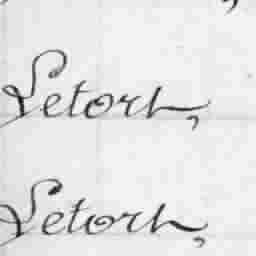 Letort,
Letort,